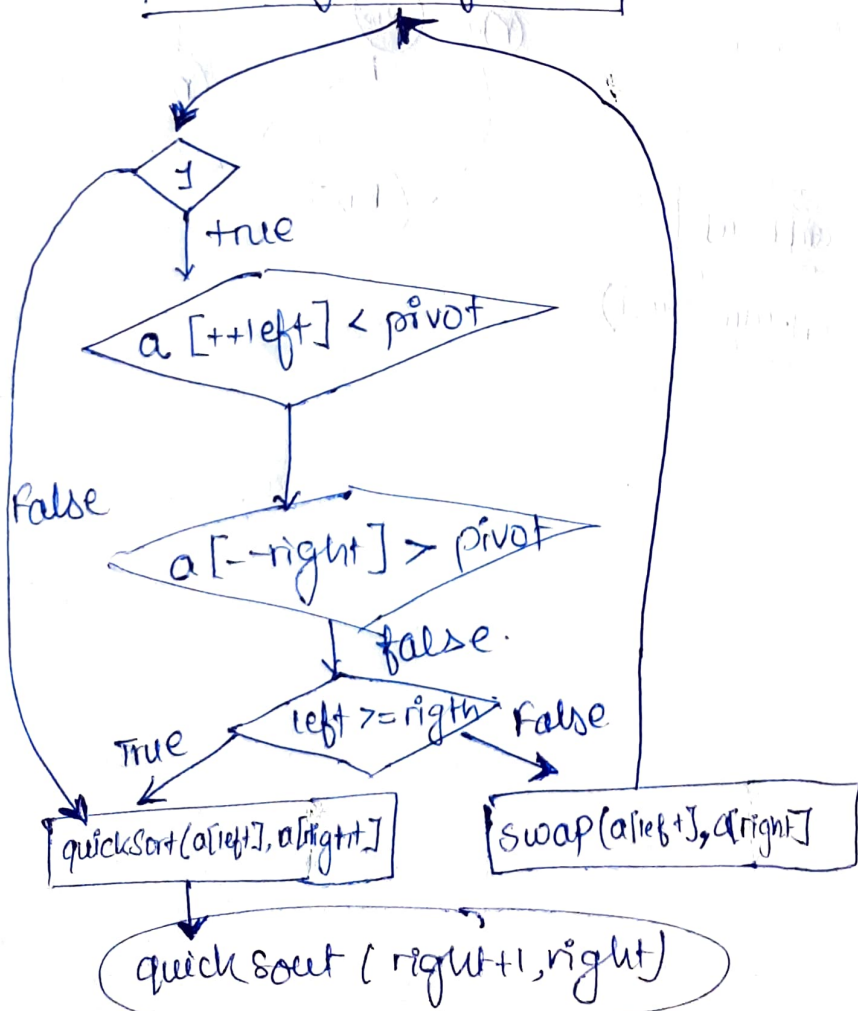 1
true
a [++left] < pivot
False
a [--right] > pivot
false.
left >= rigth
True
False
quickSort(a[left], a[right]
swap(a[left], a[right]
quicksout ( right+1, right)